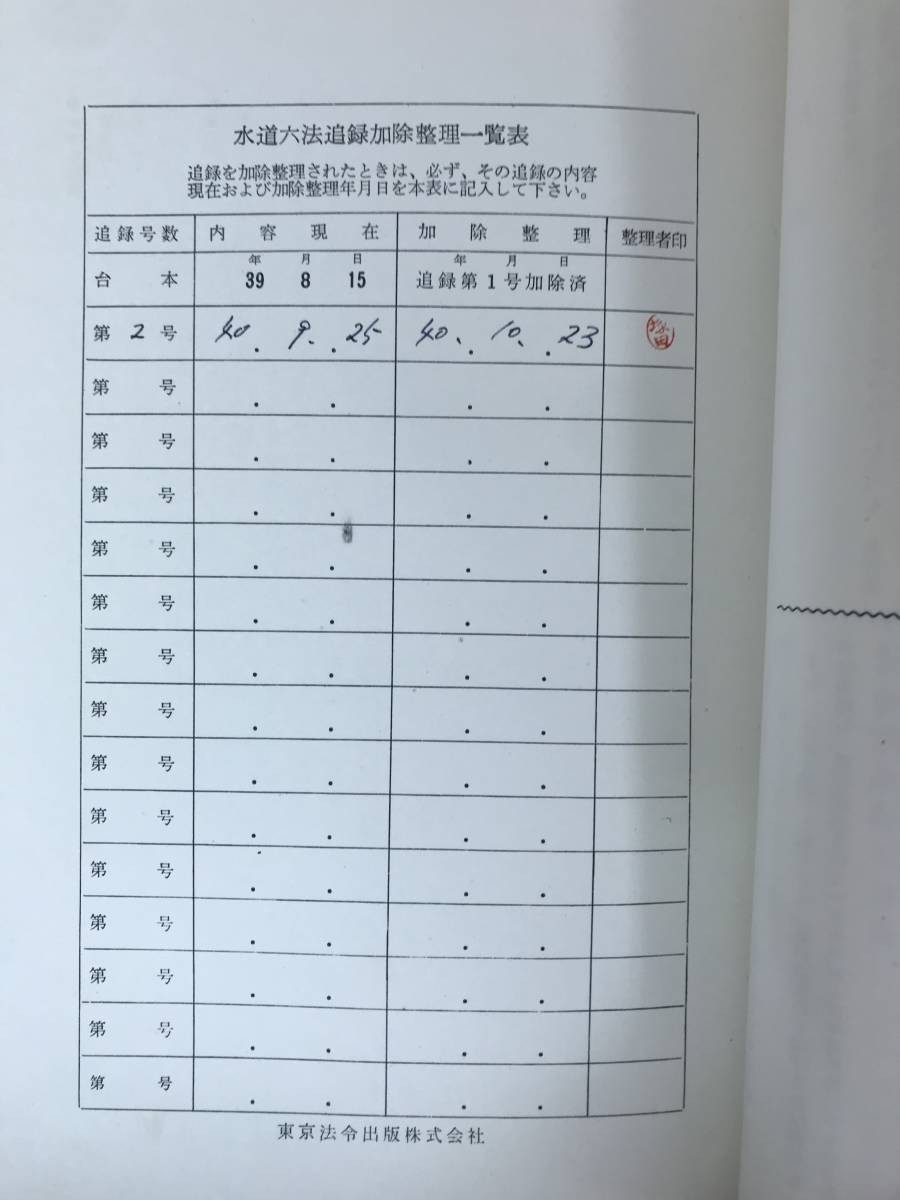 水道六法追録加除整理一覧表
追録を加除整理されたときは、必ず、その追録の内容
現在および加除整理年月日を本表に記入して下さい。
追録号数 内容現在 加除整理 整理者印
年 月 日 年 月 日
台本 39 8 15 追録第1号加除済
第2号 40. 9. 25 40. 10. 23
第 号 . . . .
第 号 . . . .
第 号 . . . .
第 号 . . . .
第 号 . . . .
第 号 . . . .
第 号 . . . .
第 号 . . . .
第 号 . . . .
第 号 . . . .
第 号 . . . .
第 号 . . . .
第 号 . . . .
第 号 . . . .
東京法令出版株式会社